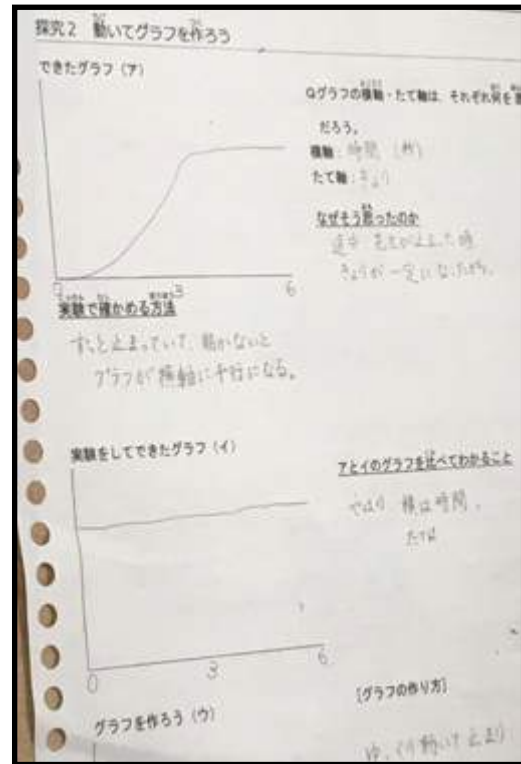 探究2 動いてグラフを作ろう
できたグラフ(ア)
Qグラフの横軸・たて軸は、それぞれ何を
だろう。
横軸:時間(秒)
たて軸:きょり
なぜそう思ったのか
途中 先生が止まった時
きょりが一定になったから。
3
6
実験で確かめる方法
ずっと止まっていて、動かないと
グラフが横軸に平行になる。
実験をしてできたグラフ(イ)
アとイのグラフを比べてわかること
やはり 横は時間、
たては
0
3
6
グラフを作ろう(ウ)
[グラフの作り方]
ゆっくり動いて止まり